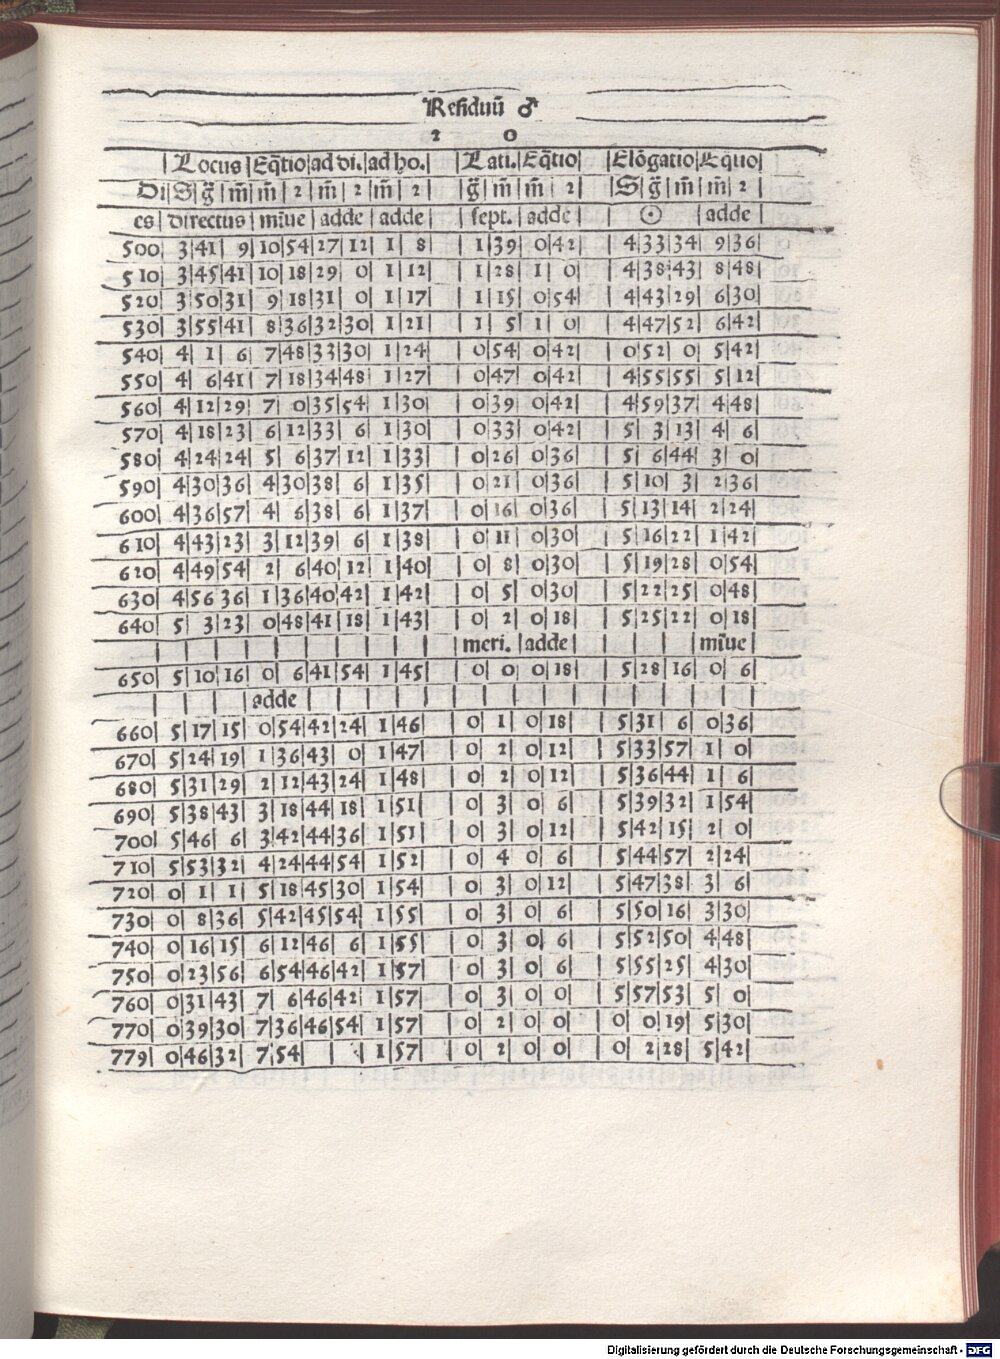 Residuū ♂
2 0
|Locus|Eq̄tio|ad di.|ad ho.| |Lati.|Eq̄tio| |Elōgatio|Eq̄uo|
Di|S|g̈|m̄|m̄|2|m̄|2|m̄|2| |g̈|m̄|m̄|2| |S|g̈|m̄|m̄|2|
es|directus|mīue|adde|adde| |sept.|adde| |☉|adde|
500|3|41|9|10|54|27|12|1|8| |1|39|0|42| |4|33|34|9|36|
510|3|45|41|10|18|29|0|1|12| |1|28|1|0| |4|38|43|8|48|
520|3|50|31|9|18|31|0|1|17| |1|15|0|54| |4|43|29|6|30|
530|3|55|41|8|36|32|30|1|21| |1|5|1|0| |4|47|52|6|42|
540|4|1|6|7|48|33|30|1|24| |0|54|0|42| |0|52|0|5|42|
550|4|6|41|7|18|34|48|1|27| |0|47|0|42| |4|55|55|5|12|
560|4|12|29|7|0|35|54|1|30| |0|39|0|42| |4|59|37|4|48|
570|4|18|23|6|12|33|6|1|30| |0|33|0|42| |5|3|13|4|6|
580|4|24|24|5|6|37|12|1|33| |0|26|0|36| |5|6|44|3|0|
590|4|30|36|4|30|38|6|1|35| |0|21|0|36| |5|10|3|2|36|
600|4|36|57|4|6|38|6|1|37| |0|16|0|36| |5|13|14|2|24|
610|4|43|23|3|12|39|6|1|38| |0|11|0|30| |5|16|22|1|42|
620|4|49|54|2|6|40|12|1|40| |0|8|0|30| |5|19|28|0|54|
630|4|56|36|1|36|40|42|1|42| |0|5|0|30| |5|22|25|0|48|
640|5|3|23|0|48|41|18|1|43| |0|2|0|18| |5|25|22|0|18|
|meri.|adde| |mīue|
650|5|10|16|0|6|41|54|1|45| |0|0|0|18| |5|28|16|0|6|
|adde|
660|5|17|15|0|54|42|24|1|46| |0|1|0|18| |5|31|6|0|36|
670|5|24|19|1|36|43|0|1|47| |0|2|0|12| |5|33|57|1|0|
680|5|31|29|2|12|43|24|1|48| |0|2|0|12| |5|36|44|1|6|
690|5|38|43|3|18|44|18|1|51| |0|3|0|6| |5|39|32|1|54|
700|5|46|6|3|42|44|36|1|51| |0|3|0|12| |5|42|15|2|0|
710|5|53|32|4|24|44|54|1|52| |0|4|0|6| |5|44|57|2|24|
720|0|1|1|5|18|45|30|1|54| |0|3|0|12| |5|47|38|3|6|
730|0|8|36|5|42|45|54|1|55| |0|3|0|6| |5|50|16|3|30|
740|0|16|15|6|12|46|6|1|55| |0|3|0|6| |5|52|50|4|48|
750|0|23|56|6|54|46|42|1|57| |0|3|0|6| |5|55|25|4|30|
760|0|31|43|7|6|46|42|1|57| |0|3|0|0| |5|57|53|5|0|
770|0|39|30|7|36|46|54|1|57| |0|2|0|0| |0|0|19|5|30|
779|0|46|32|7|54| | |1|57| |0|2|0|0| |0|2|28|5|42|
Digitalisierung gefördert durch die Deutsche Forschungsgemeinschaft - DFG